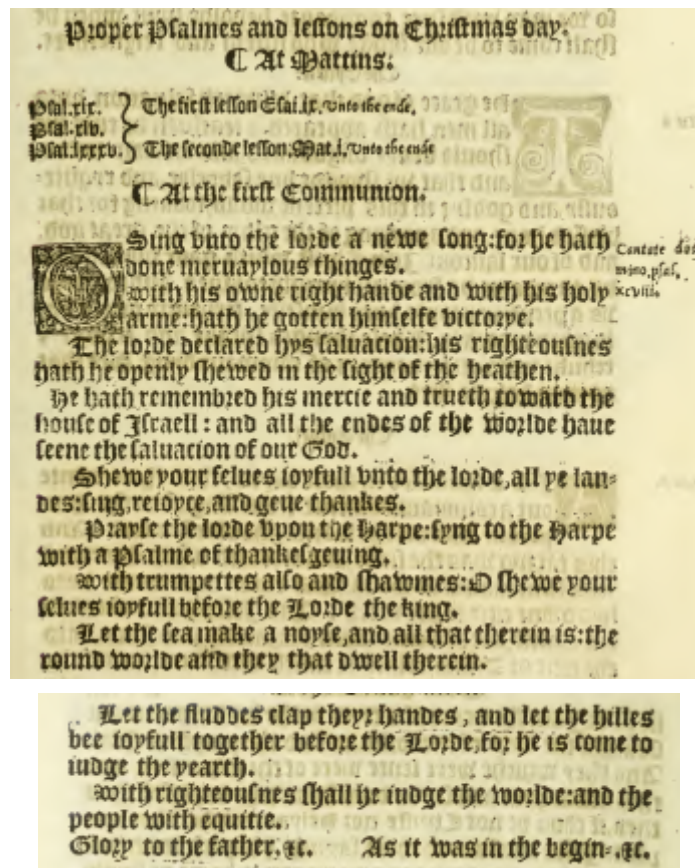 Proper Psalmes and lessons on Christmas day.
¶ At Mattins.
Psal.xix. } The first lesson Esai.ix. vnto the ende.
Psal.xlv.
Psal.lxxxv. } The seconde lesson.Mat.i. vnto the ende
¶ At the first Communion.
O Sing vnto the lorde a newe song:for he hath
done meruaylous thinges.
Cantate domino.psal.
xcviii.
With his owne right hande and with his holy
arme:hath he gotten himselfe victorye.
The lorde declared hys saluacion:his righteousnes
hath he openly shewed in the sight of the heathen.
He hath remembred his mercie and trueth toward the
house of Israell : and all the endes of the worlde haue
seene the saluacion of our God.
Shewe your selues ioyfull vnto the lorde,all ye lan-
des:sing,reioyce,and geue thankes.
Prayse the lorde vpon the Harpe:syng to the Harpe
with a Psalme of thankesgeuing.
With trumpettes also and shawmes:O shewe your
selues ioyfull before the Lorde the king.
Let the sea make a noyse,and all that therein is:the
round worlde and they that dwell therein.
Let the fluddes clap theyr handes, and let the hilles
bee ioyfull together before the Lorde,for he is come to
iudge the yearth.
With righteousnes shall he iudge the worlde:and the
people with equitie.
Glory to the father.&c. As it was in the begin-.&c.